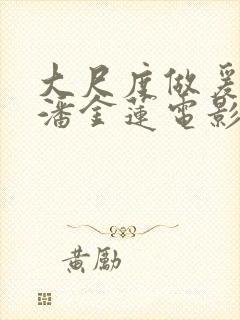 大尺度做爰
潘金莲电影
黄勵